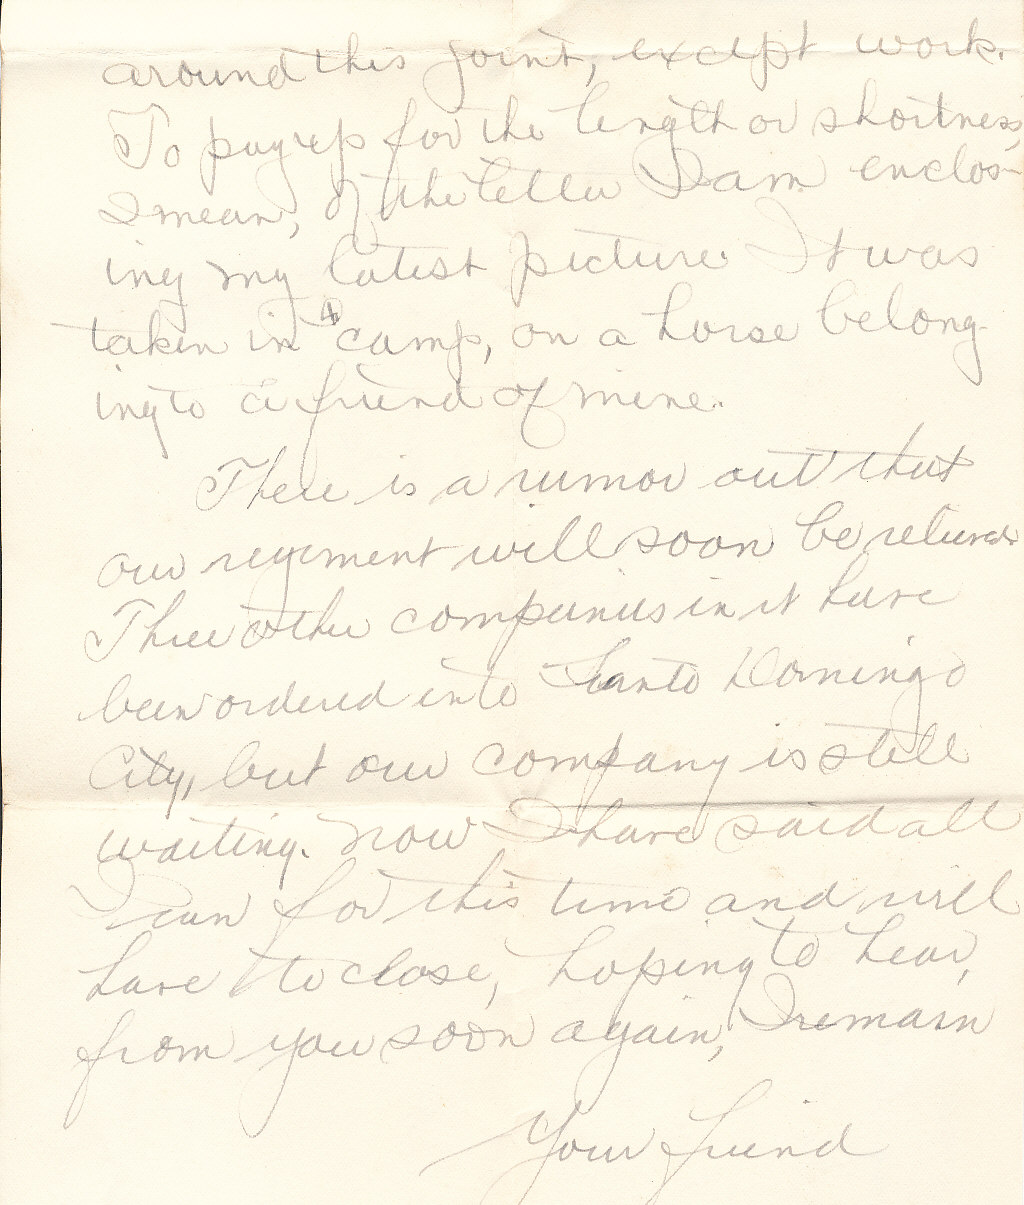 around this joint, except work.
To pay up for the length or shortness,
I mean, of the letter I am enclos-
ing my latest picture. It was
taken in camp, on a horse belong-
ing to a friend of mine.
There is a rumor out that
our regiment will soon be
Three other companies in it have
been ordered into Santo Domingo
City, but our company is still
waiting. Now I have said all
I can for this time and will
have to close, hoping to hear,
from you soon again, I remain
Your friend